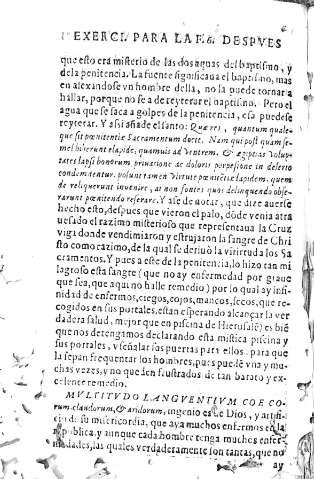 EXERCI. PARA LA F. 6. DESPVES
que esto era misterio de las dos aguas del baptismo, y
de la penitencia. La fuente significaua el baptismo, mas
en alexandose vn hombre della, no la puede tornar a
hallar, porque no se a de reyterar el baptismo. Pero el
agua que se saca a golpes de la penitencia, esa puedese
reyterar. Y asi añade el santo: Quæres, quantum quale-
que sit pœnitentiæ Sacramentum docet. Nam qui post quam se-
mel biberunt e lapide, quamuis ad ventrem, & ægiptias volup
tates lapsi bonorum priuatione ac doloris perpesione in deserto
condemnentur. possunt tamen virtute pœnitẽtiæ lapidem. quem
de reliquerunt inuenire, ac non fontes quos delinquendo obse-
rarunt pœnitendo reserare. Y ase de notar, que dize auerse
hecho esto, despues que vieron el palo, dõde venia atra
uesado el razimo misterioso que representaua la Cruz
viga donde vendimiaron y estrujaron la sangre de Chri
sto como razimo, de la qual se deriuò la virtud a los Sa
cramentos. Y pues a este de la penitencia, lo hizo tan mi
lagroso esta sangre (que no ay enfermedad por graue
que sea, que aqui no halle remedio) por lo qual ay infi-
nidad de enfermos, ciegos, cojos, mancos, secos, que re-
cogidos en sus portales, estan esperando alcançar la ver
dadera salud, mejor que en piscina de Hierusalẽ) es biẽ
que nos detengamos declarando esta mistica piscina y
sus portales, y señalar sus puertas para ellos. para que
la sepan frequentar los hombres, pues puedẽ vna y mu-
chas vezes, y no queden frustrados de tan barato y ex-
celente remedio.
MVLTITVDO LANGVENTIVM COECO-
rum, claudorum, & aridorum, ingenio es de Dios, y artifi-
de su misericordia, que aya muchos enfermos en la
republica. y aunque cada hombre tenga muchos enfer-
medades, las quales verdaderamente son tantas, que no
ay